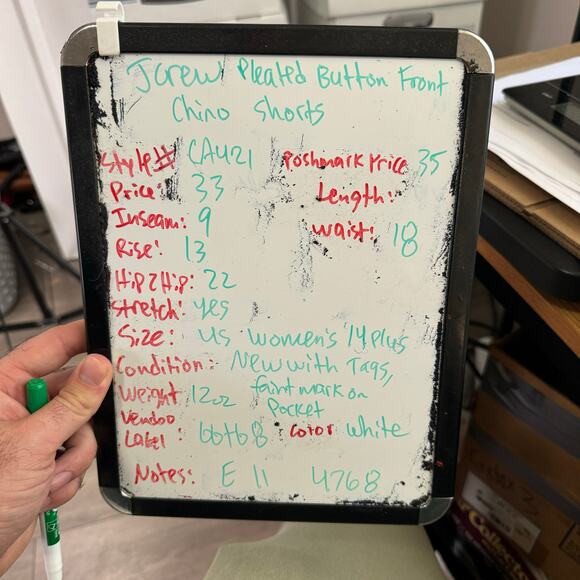 Jcrew Pleated Button Front
Chino Shorts
Style# CA421 Poshmark Price 35
Price: 33 Length:
Inseam: 9 Waist: 18
Rise: 13
Hip2Hip: 22
Stretch: yes
Size: US women's 14 plus
Condition: New with Tags,
Weight 12oz faint mark on
Pocket
Vendoo
Label: 60468 Color White
Notes: E 11 4768